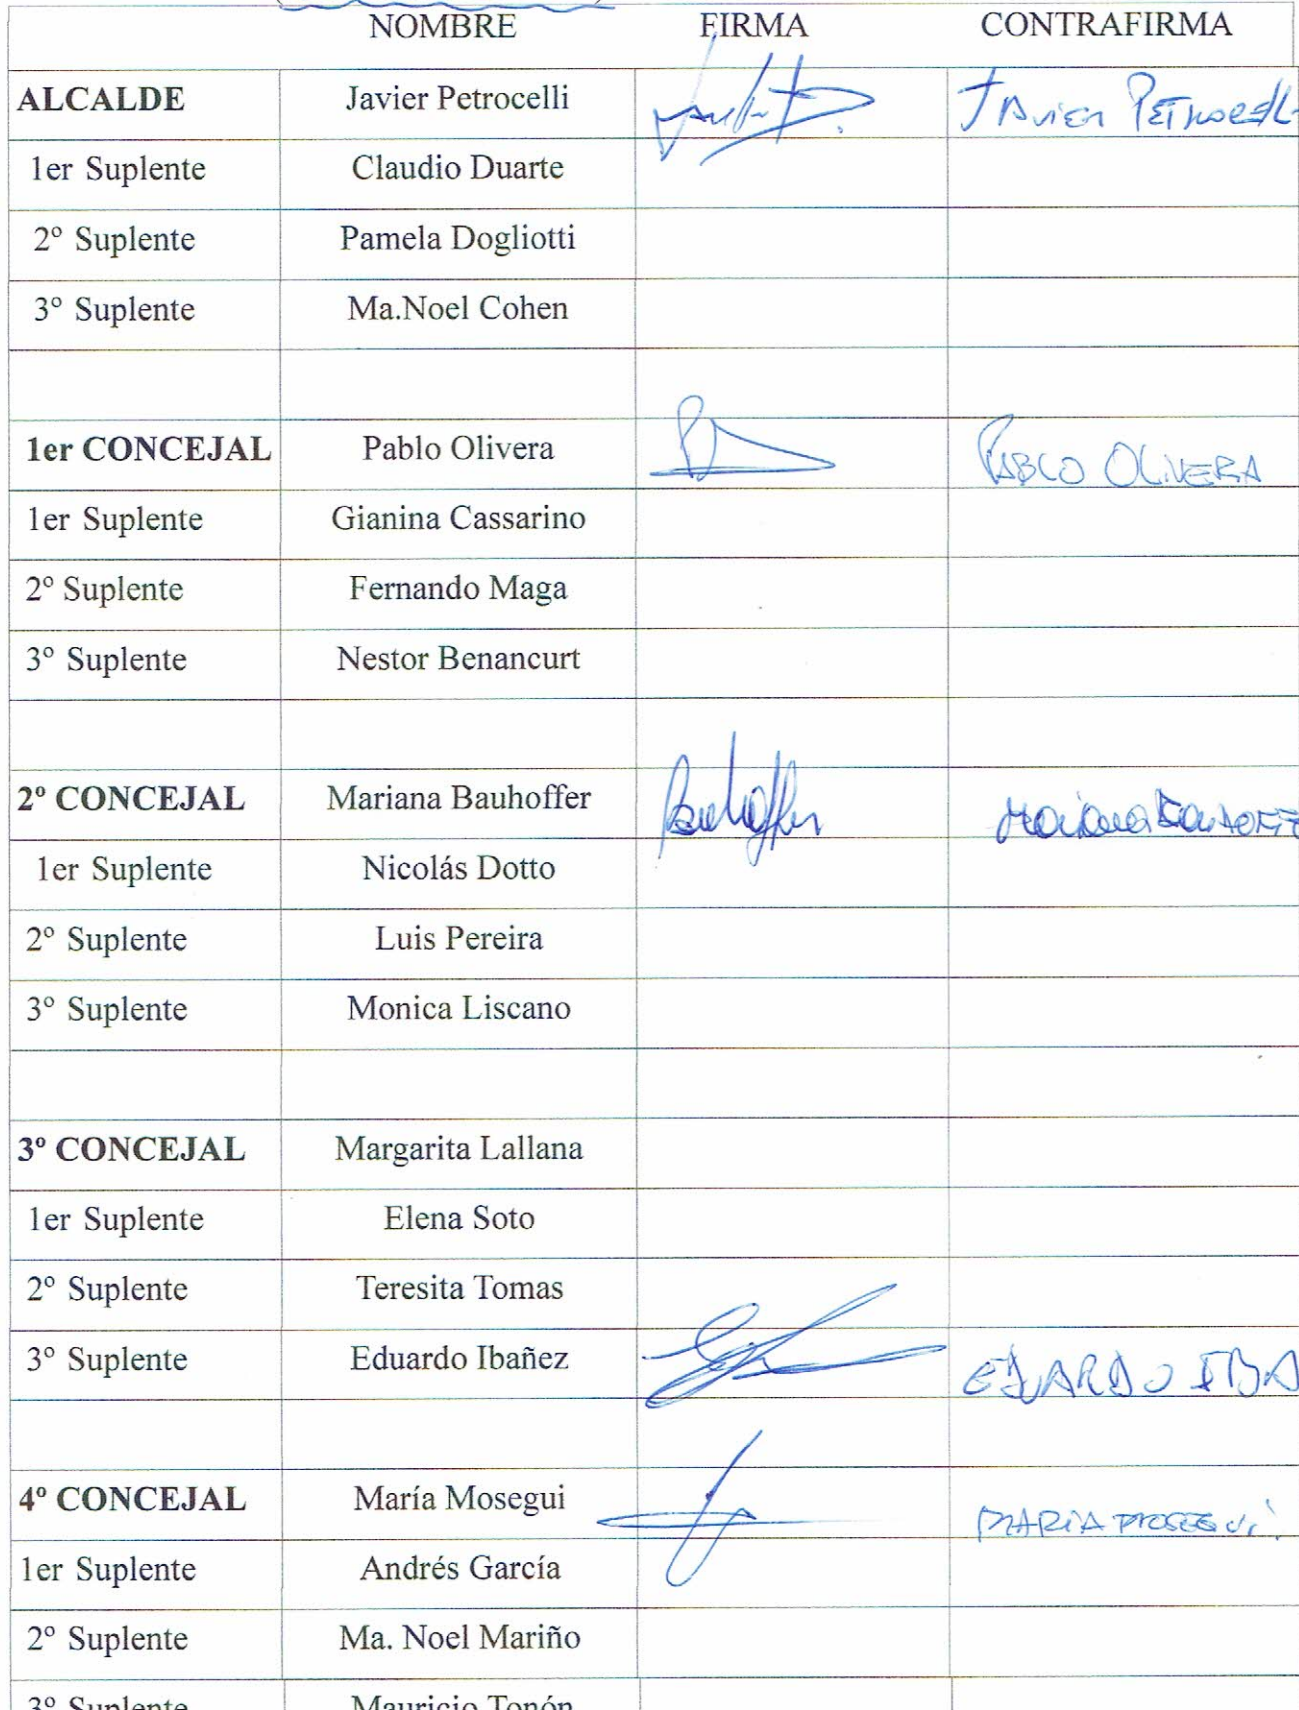 NOMBRE FIRMA CONTRAFIRMA
ALCALDE Javier Petrocelli JAVIER PETROCELLI
1er Suplente Claudio Duarte
2º Suplente Pamela Dogliotti
3º Suplente Ma.Noel Cohen
1er CONCEJAL Pablo Olivera PABLO OLIVERA
1er Suplente Gianina Cassarino
2º Suplente Fernando Maga
3º Suplente Nestor Benancurt
2º CONCEJAL Mariana Bauhoffer Bauhoffer Mariana
1er Suplente Nicolás Dotto
2º Suplente Luis Pereira
3º Suplente Monica Liscano
3º CONCEJAL Margarita Lallana
1er Suplente Elena Soto
2º Suplente Teresita Tomas
3º Suplente Eduardo Ibañez EDUARDO IBA
4º CONCEJAL María Mosegui MARIA MOSEGUI
1er Suplente Andrés García
2º Suplente Ma. Noel Mariño
3º Suplente Mauricio Tonón